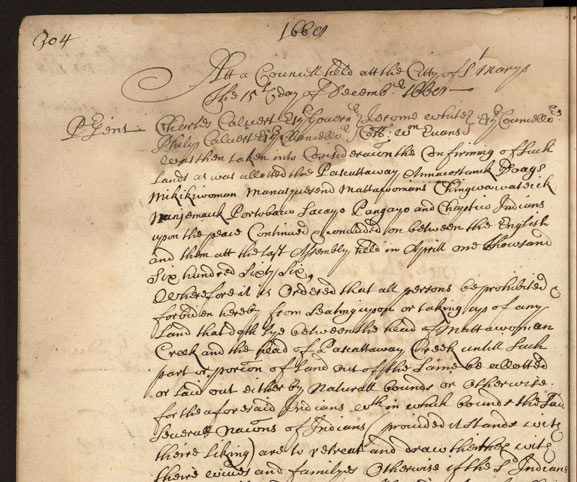 304
1668
Att a Councill held att the Citty of St Marys
the 15th day of Decembr 1668
Psent Charles Calvert Esqr Governr Jerome White Esqr Councellors
Philip Calvert Esqr Chancellor Coll: Wm Evans
Was then taken into Consideracon the Confirming of Such
Lands as was allotted the Pascuttaway Annacostank Doags
Mikikiwoman Manasquesend Mattawomans Chingwawateick
Nanjemaick Portobaco Sacayo Pangayo and Chaptico Indians
upon the peace Continued & concluded on between the English
and them att the last Assembly held in Aprill one thousand
Six hundred Sixty Six,
Wherefore it is Ordered that all persons be prohibited &
forbiden hereby from Seating upon or taking up of any
Land that doth lye between the head of Mattawoman
Creek and the head of Pascuttaway Creek untill Such
part or porcon of Land out of the Same be allotted
or laid out either by Naturall bounds or Otherwise
for the aforesaid Indians wth in which bounds the Said
Severall Nacons of Indians (provided it Stands with
theire liking) are to retreat and draw themselves with
theire wives and familyes Otherwise if the Sd Indians